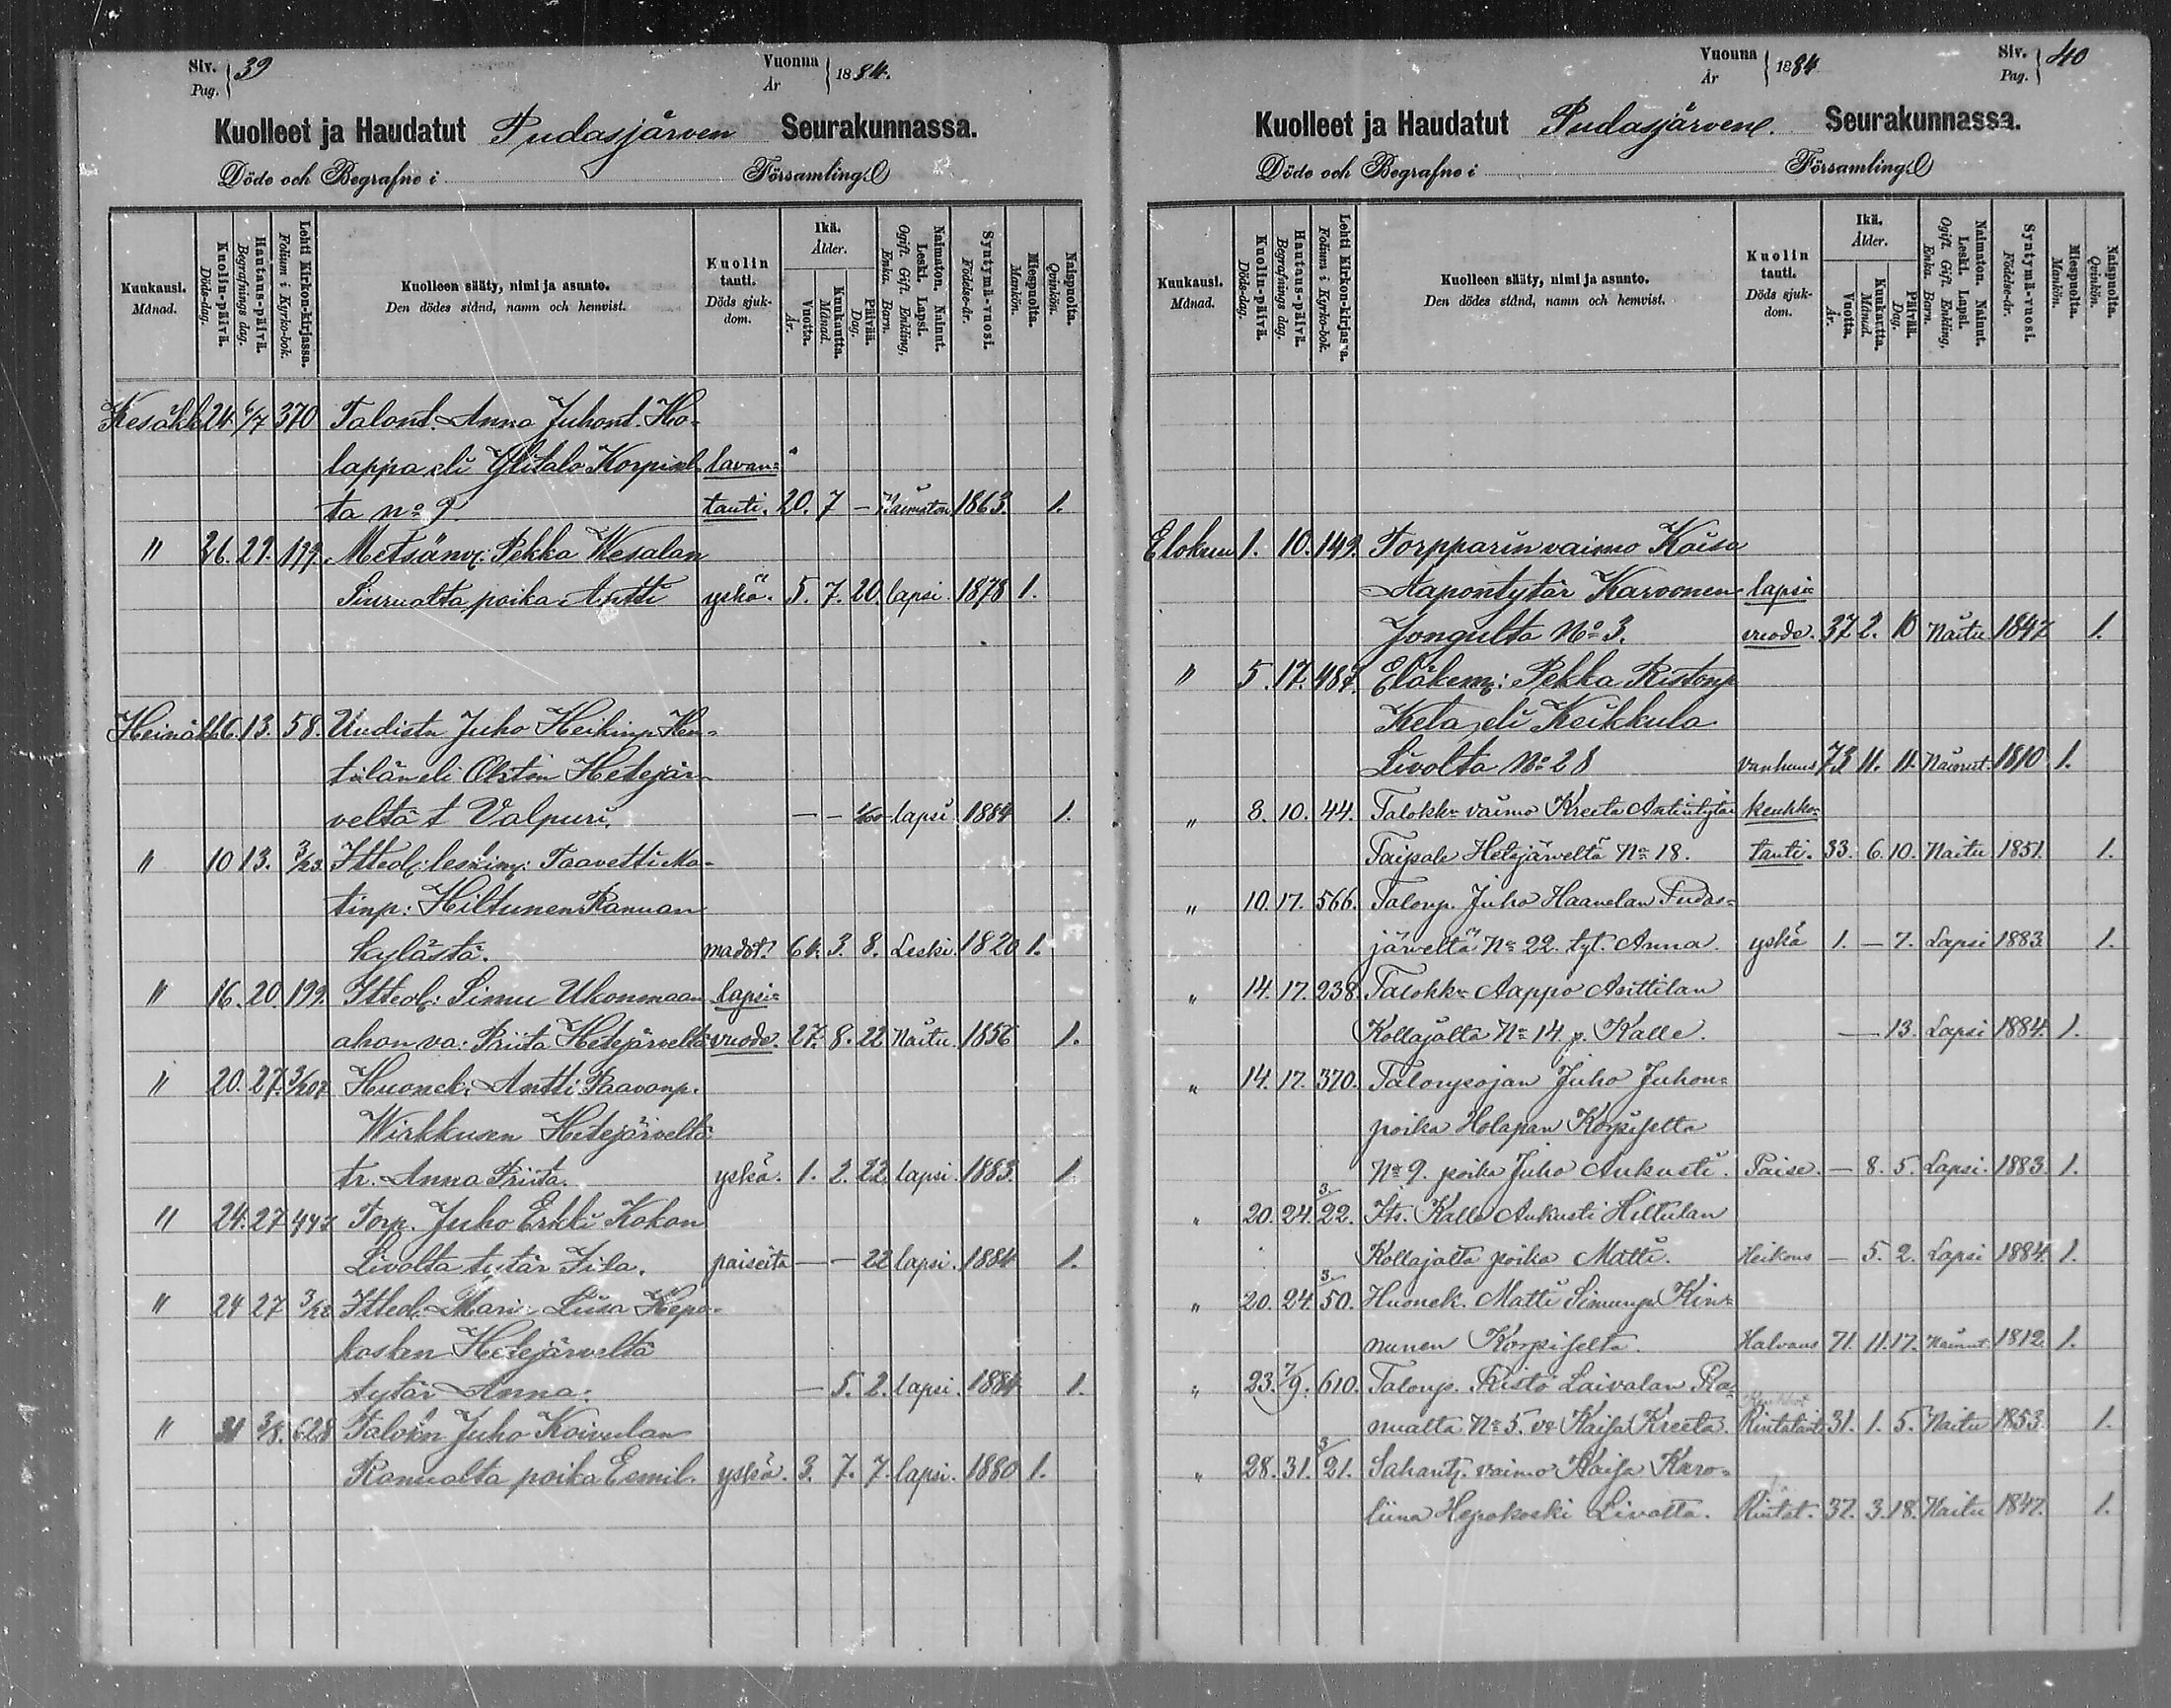 Siv. Pag. 39
Vuonna År 1884.
Kuolleet ja Haudatut Pudasjärven Seurakunnassa.
Döde och Begrafne i Församling.
Kuukausi. Månad.
Kuolin-päivä. Döds-dag.
Hautaus-päivä. Begrafnings dag.
Lehti Kirkon-kirjassa. Folium i Kyrko-bok.
Kuolleen sääty, nimi ja asunto.
Den dödes stånd, namn och hemvist.
Kuolin tauti. Döds sjukdom.
Ikä. Ålder.
Vuotta. År.
Kuukautta. Månad.
Päivää. Dag.
Naimaton. Nainut. Leski. Lapsi.
Ogift. Gift. Enkling, Enka. Barn.
Syntymä-vuosi. Födelse-år.
Miespuolta. Mankön.
Naispuolta. Qvinkön.
Kesäkk 24 6/7 370 Talont. Anna Juhont. Ho-
lappa eli Ylitalo Korpisel- lavan-
ta no 9. tauti. 20. 7 – Naimaton 1863. 1.
" 26. 29. 199. Metsänv: Pekka Wesalan
Siurualta poika Antti yskä. 5. 7. 20. lapsi. 1878 1.
Heinäk 6. 13. 58. Uudistn Juho Heikinp. Hen-
tilän eli Ohtin Hetejär-
veltä t Valpuri. – – lapsi 1884 1.
" 10 13. 3/23. Ittedl: leskim: Taavetti Ma-
tinp: Hiltunen Ranuan
kylästä. madot? 64. 3. 8. Leski. 1820 1.
" 16. 20. 199. Ittedl: Simu Ukonmaan lapsi-
ahon va: Priita Hetejärveltä vuode. 27. 8. 22 Naitu. 1856 1.
" 20. 27. 3/207 Huonek: Antti Paavonp.
Wirkkusen Hetejärveltä
tr. Anna Priita. yskä. 1. 2. 22 lapsi. 1883. 1.
" 24. 27 447 Torp. Juho Erkki Kokon
Livolta tytär Fila. paiseita – – 22 lapsi. 1884 1.
" 24 27 Ittedl: Mari Liisa Hepo-
kosken Hetejärveltä
tytär Anna. – 5. 2. lapsi. 1884 1.
" 31 3/8. 628 Talokn Juho Koivulan
Ranualta poika Eemil. yskä. 3. 7. 7. lapsi. 1880 1.
Vuonna År 1884
Siv. Pag. 40
Kuolleet ja Haudatut Pudasjärven. Seurakunnassa.
Döde och Begrafne i Församling.
Kuukausi. Månad.
Kuolin-päivä. Döds-dag.
Hautaus-päivä. Begrafnings dag.
Lehti Kirkon-kirjassa. Folium i Kyrko-bok.
Kuolleen sääty, nimi ja asunto.
Den dödes stånd, namn och hemvist.
Kuolin tauti. Döds sjukdom.
Ikä. Ålder.
Vuotta. År.
Kuukautta. Månad.
Päivää. Dag.
Naimaton. Nainut. Leski. Lapsi.
Ogift. Gift. Enkling, Enka. Barn.
Syntymä-vuosi. Födelse-år.
Miespuolta. Mankön.
Naispuolta. Qvinkön.
Elokuu 1. 10. 149. Torpparin vaimo Kaisa
Aapontytär Karvonen lapsi-
Jongulta No 3. vuode. 37 2. 10 Naitu 1847 1.
" 5. 17. 487. Eläkem: Pekka Ristonp
Keta eli Keikkula
Livolta No 28 vanhuus 73 11. 11. Nainut. 1810 1.
" 8. 10. 44. Talokkn vaimo Kreeta Antintytär keuhko-
Taipale Hetejärveltä No 18. tauti. 33. 6. 10. Naitu 1851. 1.
" 10. 17. 566. Talonp. Juho Haanelan Pudas-
järveltä No 22. tyt. Anna. yskä 1. – 7. Lapsi 1883 1.
" 14. 17. 238. Talokkn Aappo Anttilan
Kollajalta No 14. p. Kalle. – 13. Lapsi 1884. 1.
" 14. 17. 370. Talonpojan Juho Juhon-
poika Holapan Korpiselta
No 9. poika Juho Aukusti. Paise. – 8. 5. Lapsi. 1883. 1.
" 20. 24. 3/22. Its. Kalle Aukusti Hiltulan
Kollajalta poika Matti. Heikous – 5. 2. Lapsi 1884. 1.
" 20. 24. 3/50. Huonek. Matti Simunp. Kin-
nunen Korpiselta. Halvaus 71. 11. 17. Nainut. 1812. 1.
" 23. 7/9. 610. Talonp. Risto Laivalan Ra-
nualta No 5. va Kaisa Kreeta. Rintataut 31. 1. 5. Naitu 1853. 1.
" 28. 31. 3/21. Sahantj. vaimo Kaisa Karo-
liina Hepokoski Livolta. Rintat. 37. 3. 18. Naitu 1847. 1.